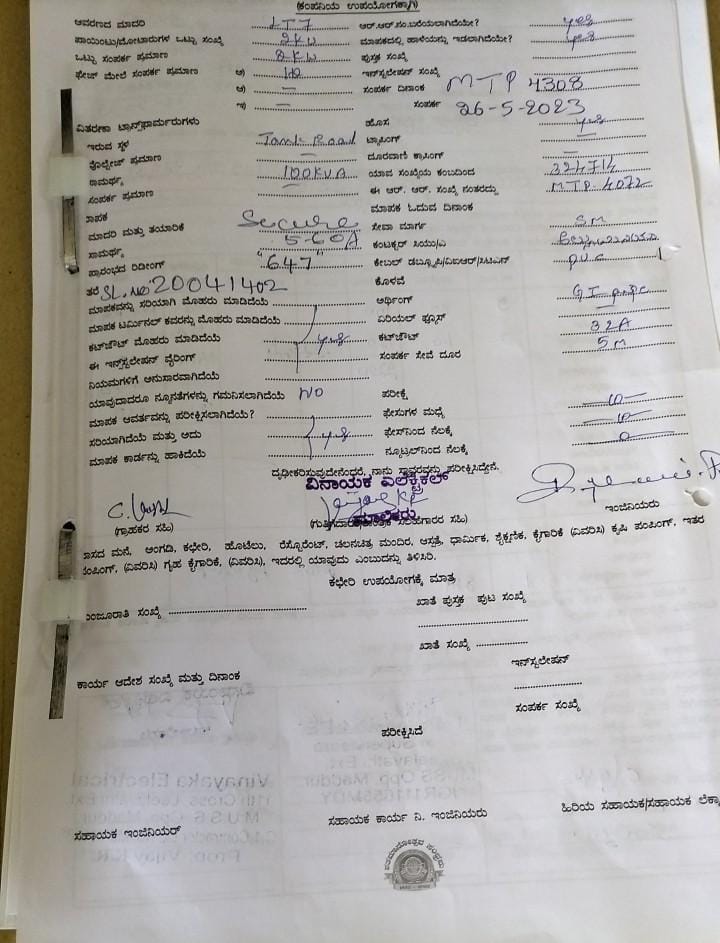 (ಕಂಪನಿಯ ಉಪಯೋಗಕ್ಕಾಗಿ)
ಆವರಣದ ಮಾದರಿ LT7 ಆರ್.ಆರ್.ನಂ.ಬರೆಯಲಾಗಿದೆಯೇ? yes
ಪಾಯಿಂಟು/ಮೋಟಾರುಗಳ ಒಟ್ಟು ಸಂಖ್ಯೆ 2KW ಮಾಪಕದಲ್ಲಿ ಹಾಳೆಯನ್ನು ಇಡಲಾಗಿದೆಯೇ? yes
ಒಟ್ಟು ಸಂಪರ್ಕ ಪ್ರಮಾಣ 2KW ಪುಸ್ತಕ ಸಂಖ್ಯೆ
ಫೇಜ್ ಮೇಲೆ ಸಂಪರ್ಕ ಪ್ರಮಾಣ ಅ) ಇನ್‌ಸ್ಟಲೇಷನ್ ಸಂಖ್ಯೆ MTP 4308
ಆ) — ಸಂಪರ್ಕ ದಿನಾಂಕ
ಇ) — ಸಂಪರ್ಕ 26-5-2023
ವಿತರಣಾ ಟ್ರಾನ್ಸ್‌ಫಾರ್ಮರುಗಳು ಹೊಸ yes
ಇರುವ ಸ್ಥಳ Tank Road ಟ್ಯಾಪಿಂಗ್ —
ವೋಲ್ಟೇಜ್ ಪ್ರಮಾಣ ದೂರವಾಣಿ ಕ್ರಾಸಿಂಗ್ —
ಸಾಮರ್ಥ್ಯ 100KVA ಯಾವ ಸಂಖ್ಯೆಯ ಕಂಬದಿಂದ 324714
ಸಂಪರ್ಕ ಪ್ರಮಾಣ — ಈ ಆರ್. ಆರ್. ಸಂಖ್ಯೆ ನಂತರದ್ದು MTP-4072
ಮಾಪಕ ಮಾಪಕ ಓದುವ ದಿನಾಂಕ
ಮಾದರಿ ಮತ್ತು ತಯಾರಿಕೆ Secure ಸೇವಾ ಮಾರ್ಗ 5M
ಸಾಮರ್ಥ್ಯ 5-60A ಕಂಟಕ್ಟರ್ ಸಿಯು/ಎ
ಪ್ರಾರಂಭದ ರಿಡಿಂಗ್ "647" ಕೇಬಲ್ ಡಬ್ಲ್ಯೂಪಿ/ವಿಐಆರ್/ಸಿಟಿಎಸ್ PVC
ತರೆ SL.No 20041402 ಕೊಳವೆ
ಮಾಪಕವನ್ನು ಸರಿಯಾಗಿ ಮೊಹರು ಮಾಡಿದೆಯೆ ಅರ್ಥಿಂಗ್ GI pipe
ಮಾಪಕ ಟರ್ಮಿನಲ್ ಕವರನ್ನು ಮೊಹರು ಮಾಡಿದೆಯೆ ಏರಿಯಲ್ ಫ್ಯೂಸ್ —
ಕಟ್‌ಔಟ್ ಮೊಹರು ಮಾಡಿದೆಯೆ yes ಕಟ್‌ಔಟ್ 32A
ಈ ಇನ್‌ಸ್ಟಲೇಷನ್ ವೈರಿಂಗ್ ಸಂಪರ್ಕ ಸೇವೆ ದೂರ 5M
ನಿಯಮಗಳಿಗೆ ಅನುಸಾರವಾಗಿದೆಯೆ
ಯಾವುದಾದರೂ ನ್ಯೂನತೆಗಳನ್ನು ಗಮನಿಸಲಾಗಿದೆಯೆ NO ಪರೀಕ್ಷೆ
ಮಾಪಕ ಆವರ್ತವನ್ನು ಪರೀಕ್ಷಿಸಲಾಗಿದೆಯೆ? ಫೇಸುಗಳ ಮಧ್ಯೆ
ಸರಿಯಾಗಿದೆಯೆ ಮತ್ತು ಅದು yes ಫೇಸ್‌ನಿಂದ ನೆಲಕ್ಕೆ
ಮಾಪಕ ಕಾರ್ಡನ್ನು ಹಾಕಿದೆಯೆ ನ್ಯೂಟ್ರಲ್‌ನಿಂದ ನೆಲಕ್ಕೆ
ದೃಢೀಕರಿಸುವುದೇನೆಂದರೆ, ನಾನು ಸ್ಥಾವರವನ್ನು ಪರೀಕ್ಷಿಸಿದ್ದೇನೆ.
ವಿನಾಯಕ ಎಲೆಕ್ಟ್ರಿಕಲ್
ಮಾಲೀಕರು
(ಗ್ರಾಹಕರ ಸಹಿ) ಇಂಜಿನಿಯರು
ವಾಸದ ಮನೆ, ಅಂಗಡಿ, ಕಛೇರಿ, ಹೊಟೆಲು, ರೆಸ್ಟೊರೆಂಟ್, ಚಲನಚಿತ್ರ ಮಂದಿರ, ಆಸ್ಪತ್ರೆ, ಧಾರ್ಮಿಕ, ಶೈಕ್ಷಣಿಕ, ಕೈಗಾರಿಕೆ (ವಿವರಿಸಿ) ಕೃಷಿ ಪಂಪಿಂಗ್, ಇತರ
ಪಂಪಿಂಗ್, (ವಿವರಿಸಿ) ಗೃಹ ಕೈಗಾರಿಕೆ, (ವಿವರಿಸಿ), ಇದರಲ್ಲಿ ಯಾವುದು ಎಂಬುದನ್ನು ತಿಳಿಸಿರಿ.
ಕಛೇರಿ ಉಪಯೋಗಕ್ಕೆ ಮಾತ್ರ
ಮಂಜೂರಾತಿ ಸಂಖ್ಯೆ ಖಾತೆ ಪುಸ್ತಕ ಪುಟ ಸಂಖ್ಯೆ
ಖಾತೆ ಸಂಖ್ಯೆ
ಇನ್‌ಸ್ಟಲೇಷನ್
ಕಾರ್ಯ ಆದೇಶ ಸಂಖ್ಯೆ ಮತ್ತು ದಿನಾಂಕ
ಸಂಪರ್ಕ ಸಂಖ್ಯೆ
ಪರೀಕ್ಷಿಸಿದೆ
ಸಹಾಯಕ ಇಂಜಿನಿಯರ್ ಸಹಾಯಕ ಕಾರ್ಯ ನಿ. ಇಂಜಿನಿಯರು ಹಿರಿಯ ಸಹಾಯಕ/ಸಹಾಯಕ ಲೆಕ್ಕಾ